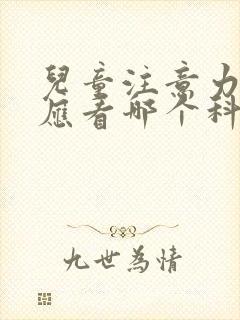 兒童注意力
應看哪个科
九世為情